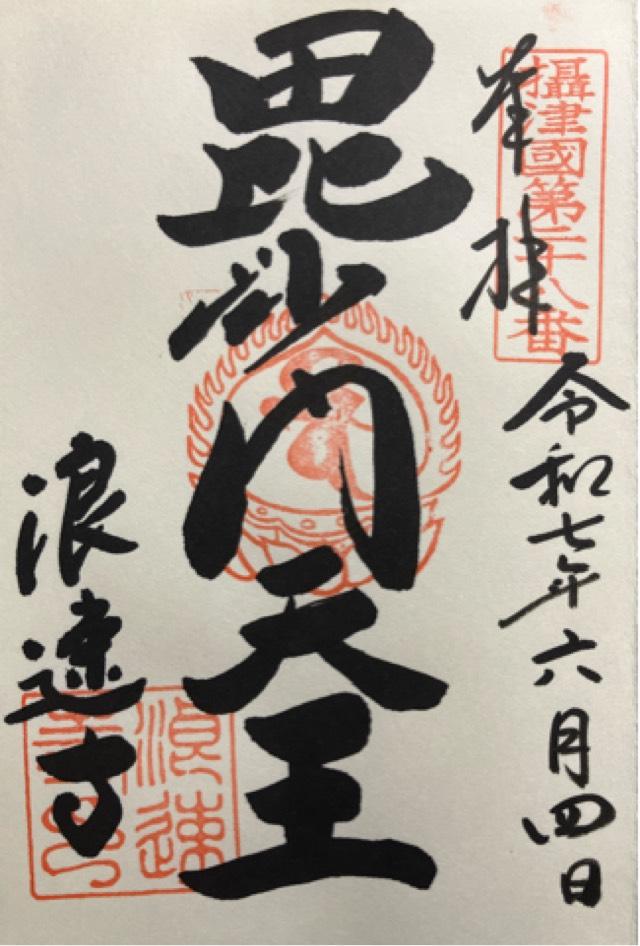 攝津國第二十八番
奉拝
令和七年六月四日
毘沙門天王
浪速寺
浪速寺印